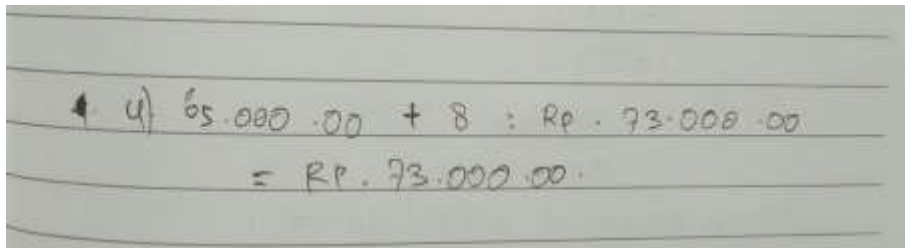 4) 65.000.00 + 8 : Rp. 73.000.00
= RP. 73.000.00.